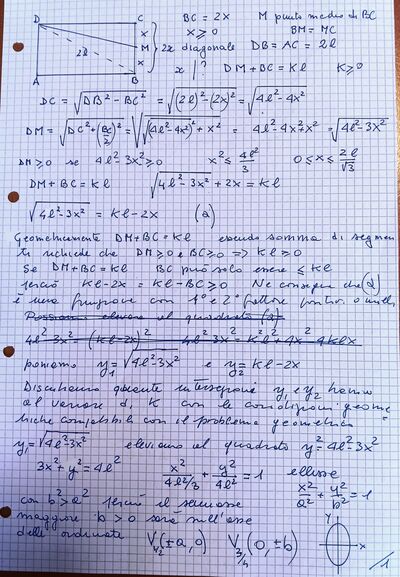 D C BC = 2x M punto medio di BC
x x ≥ 0 BM = MC
M 2x diagonale DB = AC = 2l
2l x
A B x |? DM + BC = Kl K ≥ 0
DC = √(DB² − BC²) = √((2l)² − (2x)²) = √(4l² − 4x²)
DM = √(DC² + (BC/2)²) = √(√(4l² − 4x²)² + x²) = 4l² − 4x² + x² = √(4l² − 3x²)
DM ≥ 0 se 4l² − 3x² ≥ 0 x² ≤ 4l²/3 0 ≤ x ≤ 2l/√3
DM + BC = Kl √(4l² − 3x²) + 2x = Kl
√(4l² − 3x²) = Kl − 2x (a)
Geometricamente DM + BC = Kl essendo somma di segmen
ti richiede che DM ≥ 0 e BC ≥ 0 => Kl ≥ 0
Se DM + BC = Kl BC può solo essere ≤ Kl
perciò Kl − 2x = Kl − BC ≥ 0 Ne consegue che (a)
è una funzione con 1° e 2° fattore positivi o nulli
Possiamo elevare al quadrato (a)
4l² − 3x² = (Kl − 2x)² 4l² − 3x² = K²l² + 4x² − 4Klx
poniamo y₁ = √(4l² − 3x²) e y₂ = Kl − 2x
Discutiamo quante intersezioni y₁ e y₂ hanno
al variare di K con le condizioni geome
triche compatibili con il problema geometrico
y₁ = √(4l² − 3x²) eleviamo al quadrato y² = 4l² − 3x²
3x² + y² = 4l² x²/(4l²/3) + y²/4l² = 1 ellisse
x²/a² + y²/b² = 1
con b² > a² perciò il semiasse
maggiore b > 0 sarà sull'asse
delle ordinate V₁/₂(±a, 0) V₃/₄(0, ±b)
Y
x
1